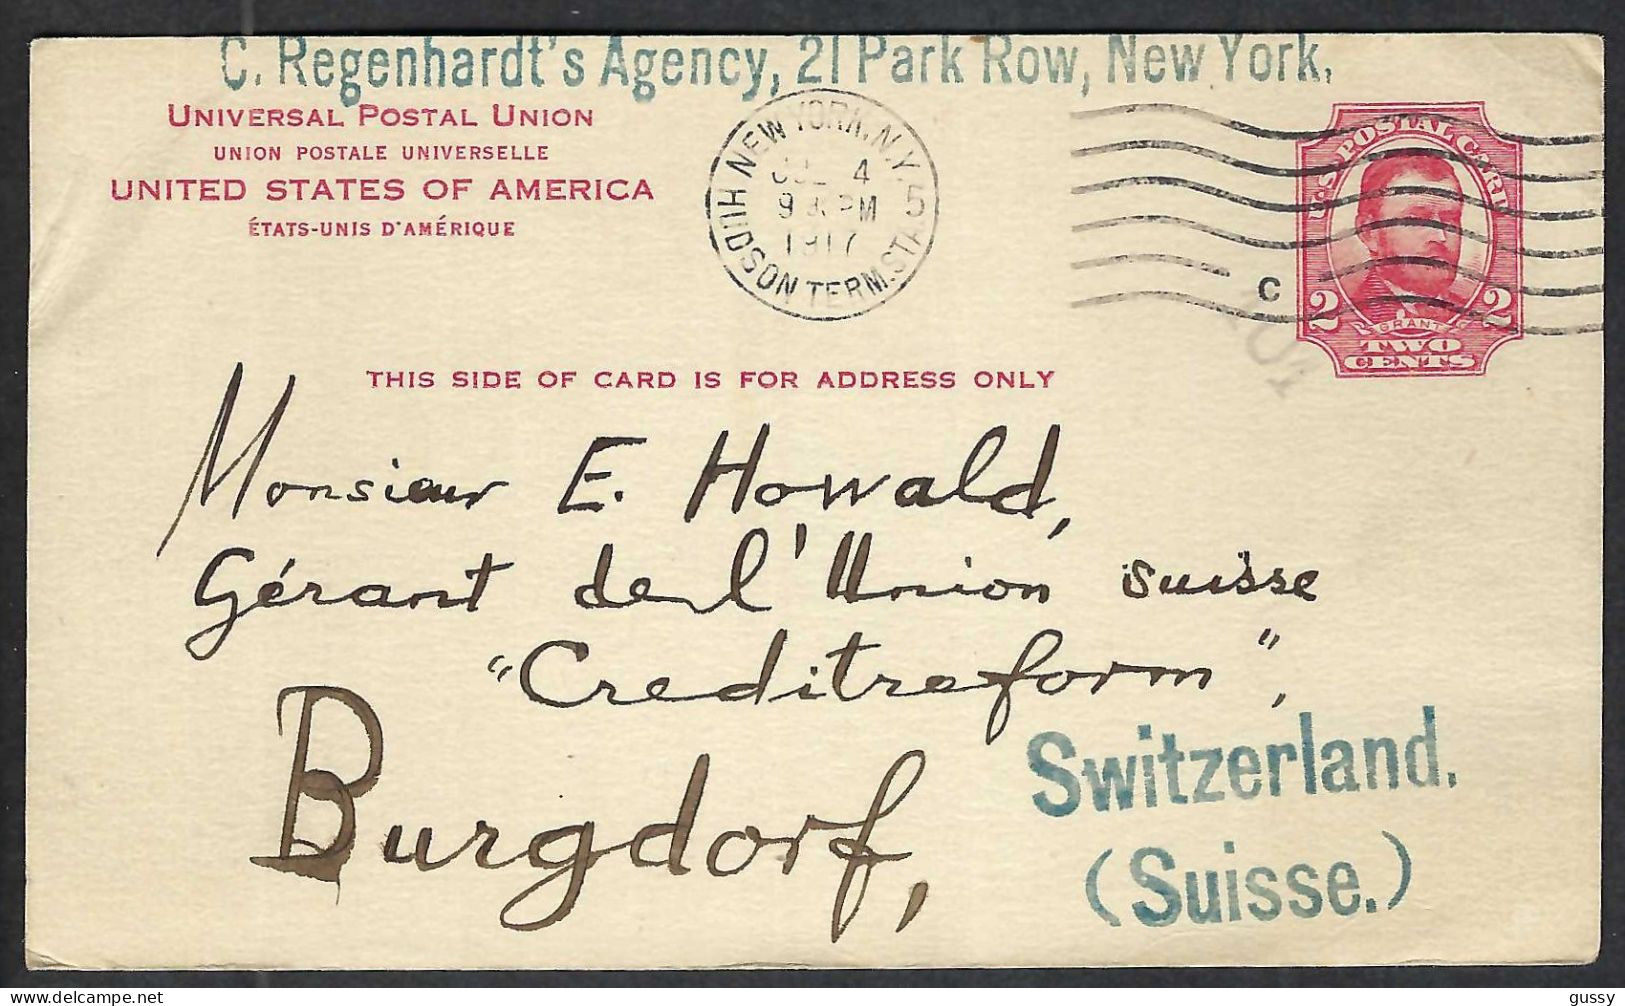 C. Regenhardt's Agency, 21 Park Row, New York.
UNIVERSAL POSTAL UNION
UNION POSTALE UNIVERSELLE
UNITED STATES OF AMERICA
ÉTATS-UNIS D'AMÉRIQUE
NEW YORK, N.Y. 5
HUDSON TERM. STA
JUL 4
PM
1917
C
U.S. POSTAL CARD
2 2
GRANT
TWO
CENTS
THIS SIDE OF CARD IS FOR ADDRESS ONLY
Monsieur E. Howald,
Gérant de l'Union suisse
"Creditreform",
Burgdorf,
Switzerland.
(Suisse.)
gussy